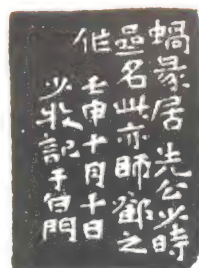 蝸篆居先公少時
罍名此亦師鄰之
作壬申十月十日
少牧記于白門